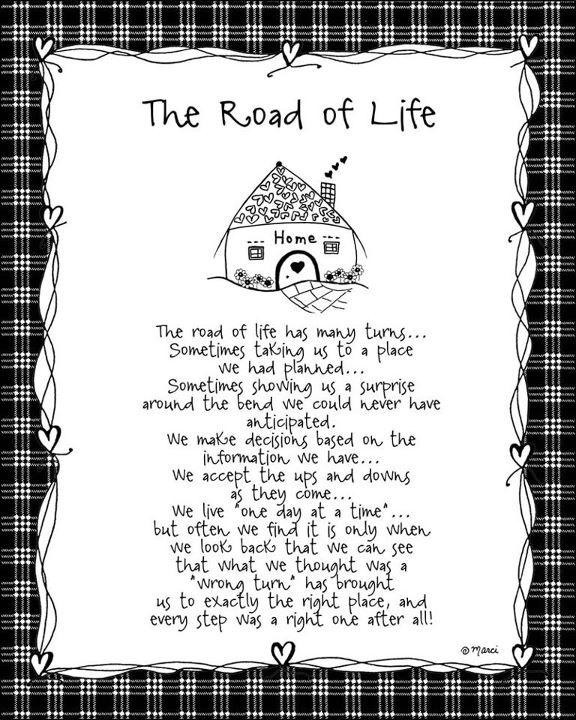 The Road of Life
Home
The road of life has many turns...
Sometimes taking us to a place
we had planned...
Sometimes showing us a surprise
around the bend we could never have
anticipated.
We make decisions based on the
information we have...
We accept the ups and downs
as they come...
We live "one day at a time"...
but often we find it is only when
we look back that we can see
that what we thought was a
"wrong turn" has brought
us to exactly the right place, and
every step was a right one after all!
© Marci